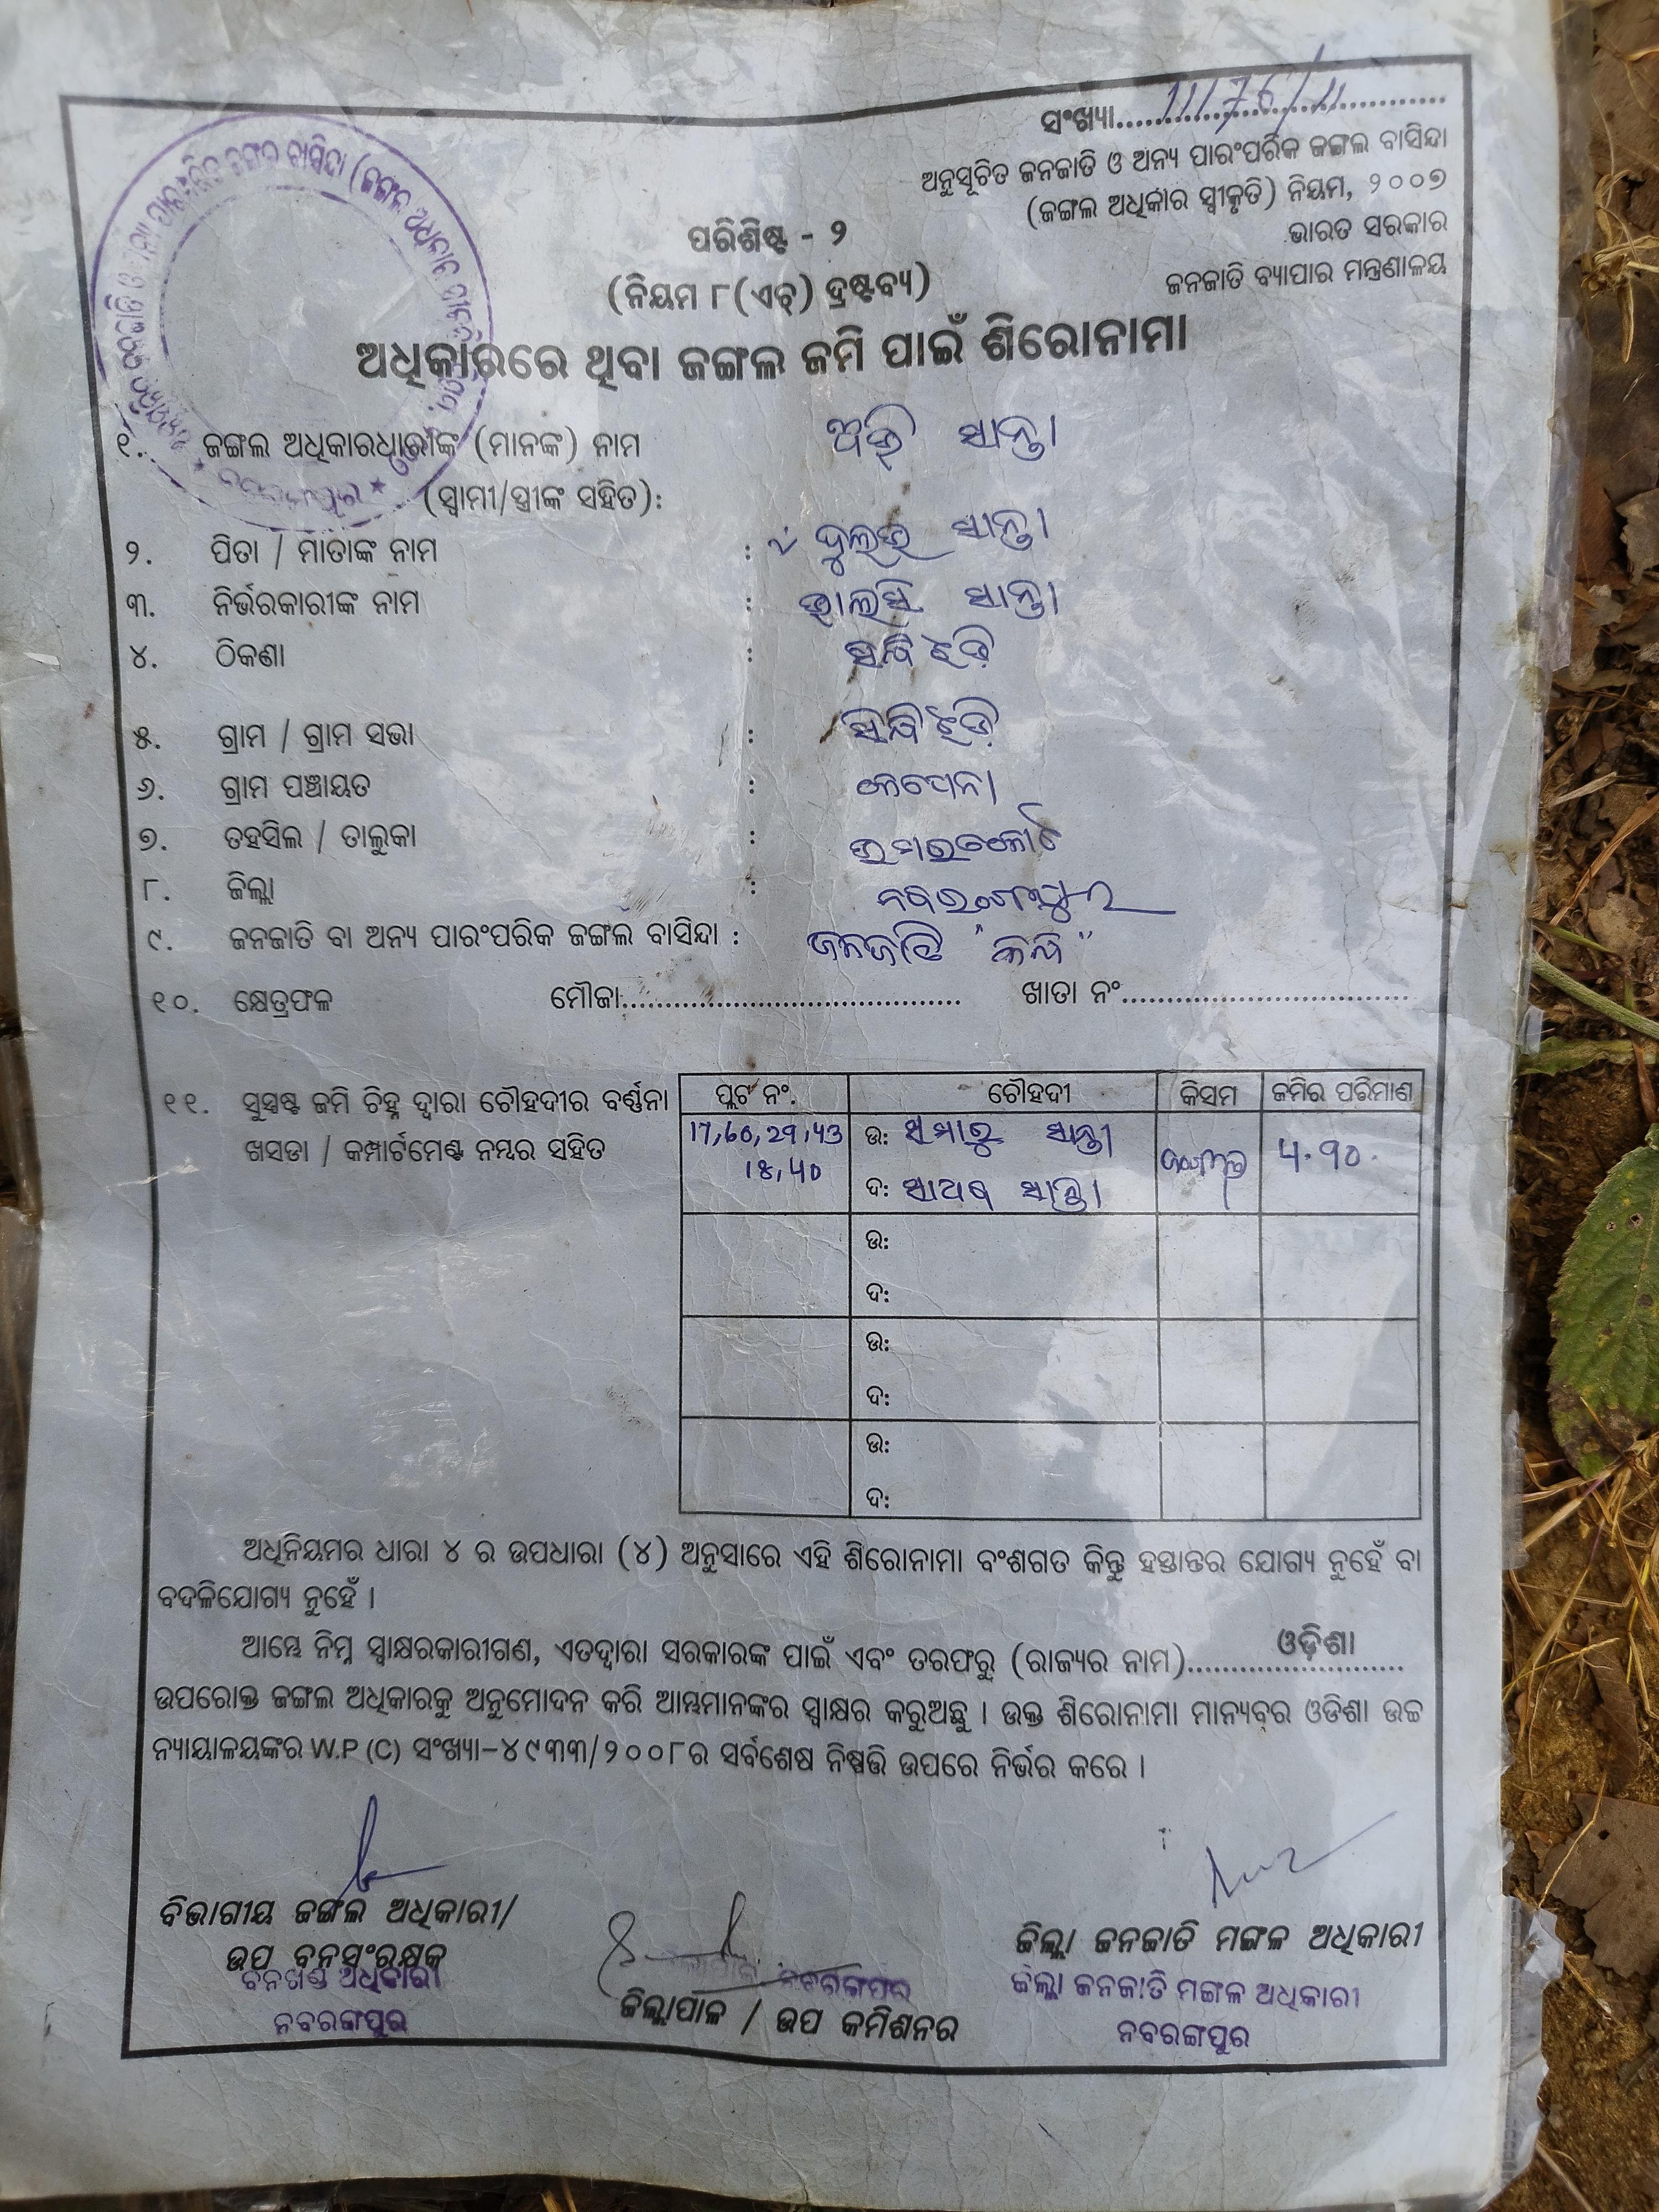 ସଂଖ୍ୟା.....11/76/11.....
ଅନୁସୂଚିତ ଜନଜାତି ଓ ଅନ୍ୟ ପାରଂପରିକ ଜଙ୍ଗଲ ବାସିନ୍ଦା
(ଜଙ୍ଗଲ ଅଧିକାର ସ୍ୱୀକୃତି) ନିୟମ, ୨୦୦୭
ଭାରତ ସରକାର
ଜନଜାତି ବ୍ୟାପାର ମନ୍ତ୍ରଣାଳୟ
ପରିଶିଷ୍ଟ - ୨
(ନିୟମ ୮(ଏଚ୍) ଦ୍ରଷ୍ଟବ୍ୟ)
ଅଧିକାରରେ ଥିବା ଜଙ୍ଗଲ ଜମି ପାଇଁ ଶିରୋନାମା
୧. ଜଙ୍ଗଲ ଅଧିକାରଧାରୀଙ୍କ (ମାନଙ୍କ) ନାମ ସାନ୍ତା
(ସ୍ୱାମୀ/ସ୍ତ୍ରୀଙ୍କ ସହିତ):
୨. ପିତା / ମାତାଙ୍କ ନାମ : ସାନ୍ତା
୩. ନିର୍ଭରକାରୀଙ୍କ ନାମ : ସାନ୍ତା
୪. ଠିକଣା :
୫. ଗ୍ରାମ / ଗ୍ରାମ ସଭା :
୬. ଗ୍ରାମ ପଞ୍ଚାୟତ :
୭. ତହସିଲ / ତାଲୁକା : ଉମରକୋଟ
୮. ଜିଲ୍ଲା : ନବରଂଗପୁର
୯. ଜନଜାତି ବା ଅନ୍ୟ ପାରଂପରିକ ଜଙ୍ଗଲ ବାସିନ୍ଦା : ଜନଜାତି
୧୦. କ୍ଷେତ୍ରଫଳ ମୌଜା........................................ ଖାତା ନଂ..................................
୧୧. ସୁସ୍ପଷ୍ଟ ଜମି ଚିହ୍ନ ଦ୍ୱାରା ଚୌହଦୀର ବର୍ଣ୍ଣନା
ଖସଡା / କମ୍ପାର୍ଟମେଣ୍ଟ ନମ୍ବର ସହିତ
ପ୍ଲଟ ନଂ. ଚୌହଦୀ କିସମ ଜମିର ପରିମାଣ
ଉ: ସମାରୁ ସାନ୍ତା
ଦ: ସାନ୍ତା ଜଙ୍ଗଲ
ଉ:
ଦ:
ଉ:
ଦ:
ଉ:
ଦ:
ଅଧିନିୟମର ଧାରା ୪ ର ଉପଧାରା (୪) ଅନୁସାରେ ଏହି ଶିରୋନାମା ବଂଶଗତ କିନ୍ତୁ ହସ୍ତାନ୍ତର ଯୋଗ୍ୟ ନୁହେଁ ବା
ବଦଳିଯୋଗ୍ୟ ନୁହେଁ ।
ଆମ୍ଭେ ନିମ୍ନ ସ୍ୱାକ୍ଷରକାରୀଗଣ, ଏତଦ୍ୱାରା ସରକାରଙ୍କ ପାଇଁ ଏବଂ ତରଫରୁ (ରାଜ୍ୟର ନାମ).......ଓଡ଼ିଶା.......
ଉପରୋକ୍ତ ଜଙ୍ଗଲ ଅଧିକାରକୁ ଅନୁମୋଦନ କରି ଆମ୍ଭମାନଙ୍କର ସ୍ୱାକ୍ଷର କରୁଅଛୁ । ଉକ୍ତ ଶିରୋନାମା ମାନ୍ୟବର ଓଡିଶା ଉଚ୍ଚ
ନ୍ୟାୟାଳୟଙ୍କର W.P (C) ସଂଖ୍ୟା-୪୯୩୩/୨୦୦୮ର ସର୍ବଶେଷ ନିଷ୍ପତ୍ତି ଉପରେ ନିର୍ଭର କରେ ।
ବିଭାଗୀୟ ଜଙ୍ଗଲ ଅଧିକାରୀ/
ଉପ ବନସଂରକ୍ଷକ
ବନଖଣ୍ଡ ଅଧିକାରୀ
ନବରଙ୍ଗପୁର
ନବରଙ୍ଗପୁର
ଜିଲ୍ଲାପାଳ / ଉପ କମିଶନର
ଜିଲ୍ଲା ଜନଜାତି ମଙ୍ଗଳ ଅଧିକାରୀ
ଜିଲ୍ଲା ଜନଜାତି ମଙ୍ଗଳ ଅଧିକାରୀ
ନବରଙ୍ଗପୁର